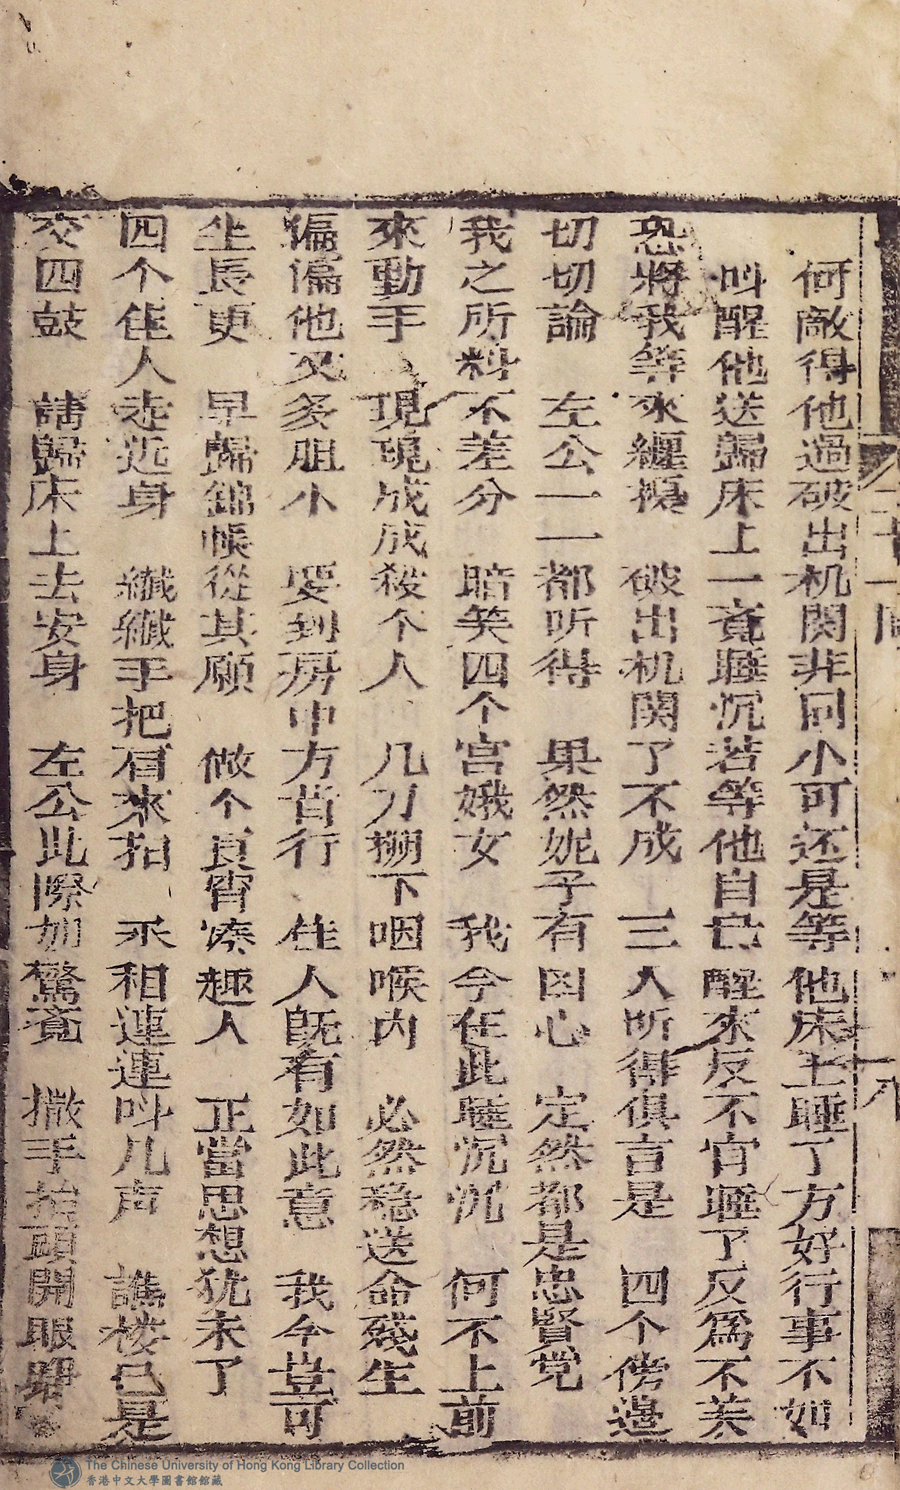 何敵得他過破出机関非同小可还是等他床上睡了方好行事不如
叫醒他送歸床上一覔睡沉若等他自己醒來反不肯睡了反為不美
恐將我等來纏擾 破出机関了不成 三人听得俱言是 四个傍邉
切切論 左公一一都听得 果然妮子有因心 定然都是忠賢党
我之所料不差分 暗笑四个宮娥女 我今在此睡沉沉 何不上前
來動手 現現成成殺个人 几刀搠下咽喉内 必然稳送命殘生
偏偏他又多胆小 要到房中方肯行 佳人既有如此意 我今豈可
坐長更 早歸錦帳從其願 做个良宵凑趣人 正當思想犹未了
四个佳人走近身 纖纖手把肩來拍 丞相連連呌几声 譙楼已是
交四鼓 請歸床上去安身 左公此際加驚覔 撒手抬頭開眼
The Chinese University of Hong Kong Library Collection
香港中文大學圖書館館藏